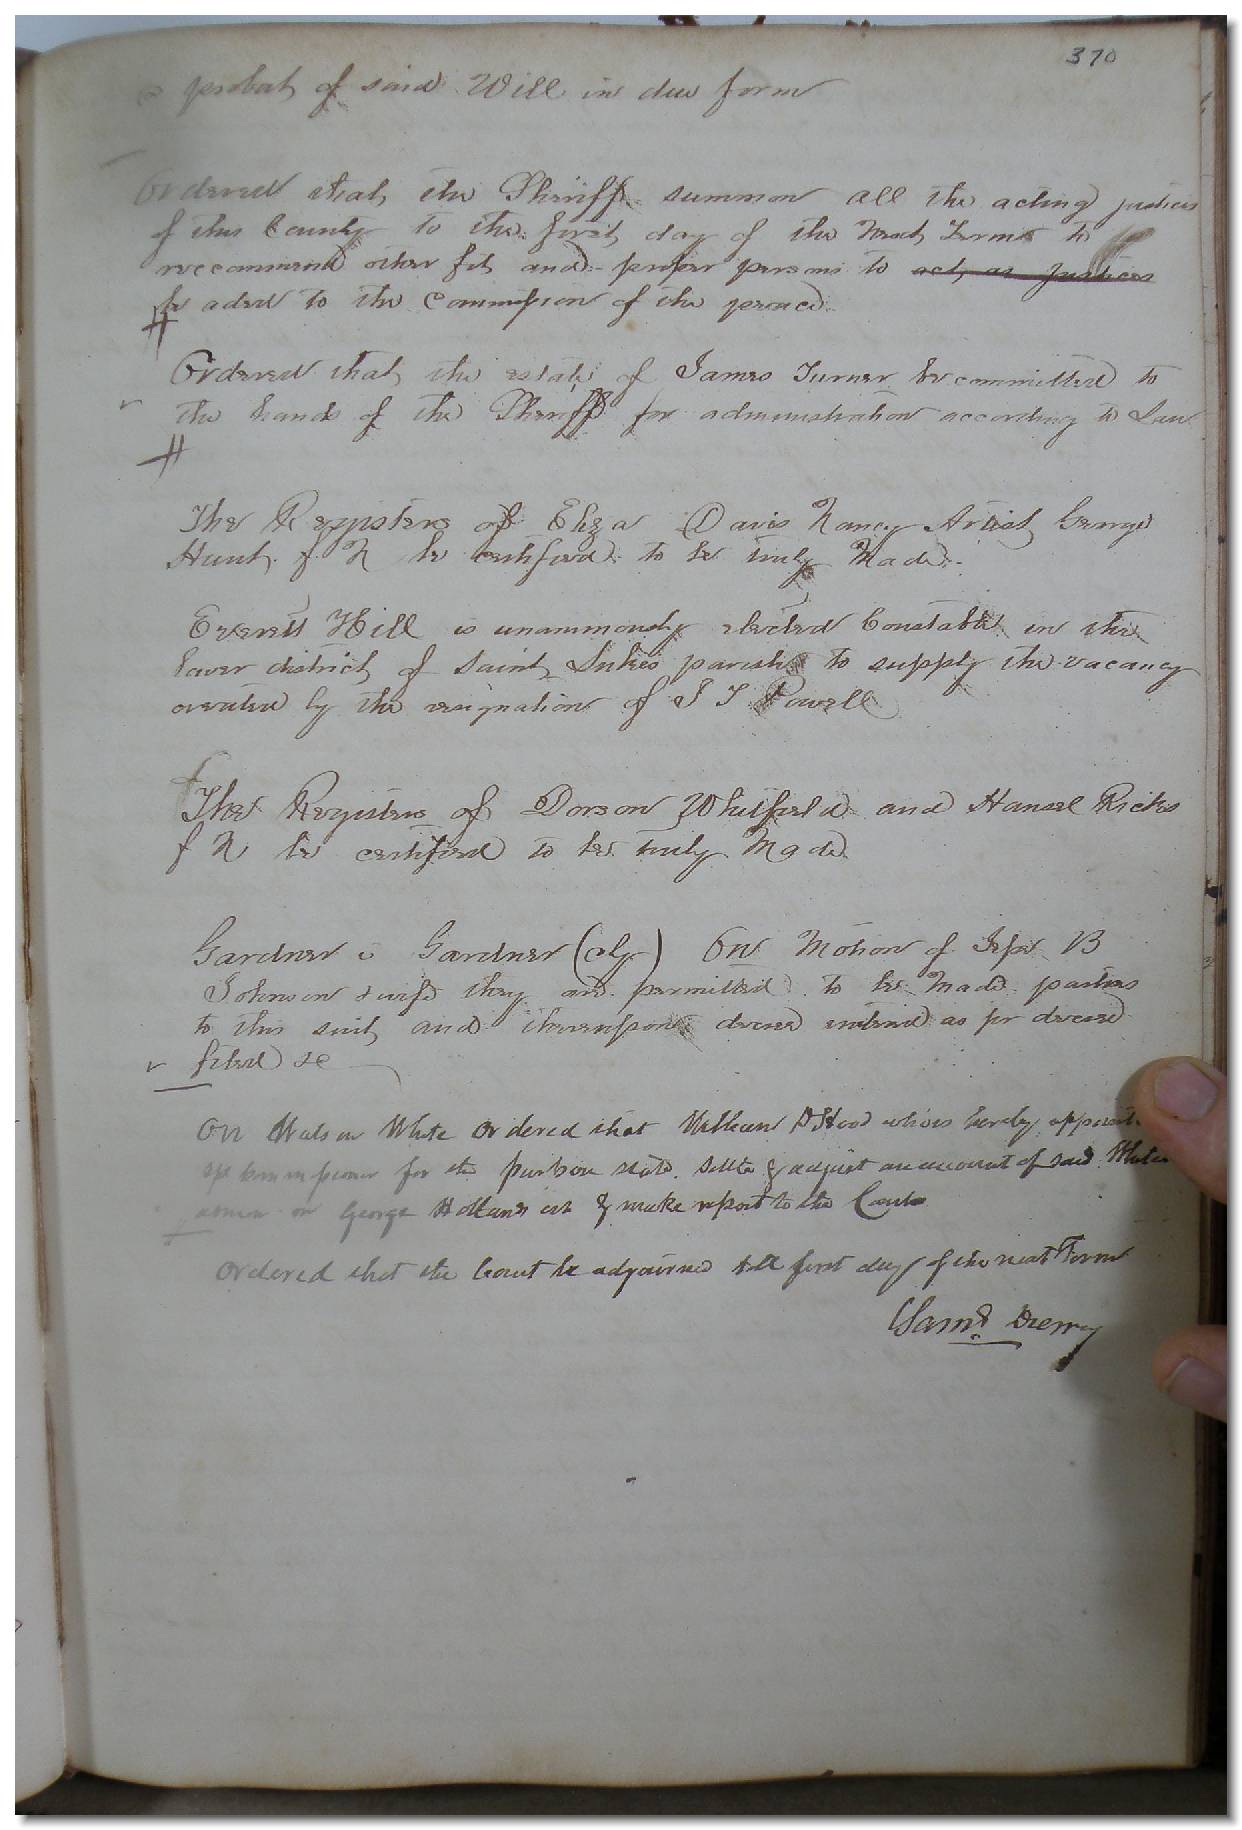 370
a probat of said Will in due form
Ordered that the Sheriff summon all the acting justices
of this County to the first day of the Next Term to
reccommend other fit and proper persons to act, as justices
be aded to the Commission of the peace
Ordered that the estate of James Turner be committed to
the hands of the Sheriff for administration according to Law
The Registers of Eliza Davis Nancy Artist George
Hunt f N be certified to be truly Made
Everett Hill is unanimously elected Constable in the
lower district of Saint Lukes parish to supply the vacancy
created by the resignation of J T Powell
The Registers of Dorson Whitfield and Hansel Ricks
f N be certified to be truly Made
Gardner v Gardner (cly) On Motion of Jesse B
Johnson & wife they are permitted to be Made parties
to this suit and thereupon decree entered as pr decree
filed &c
On Watson White ordered that William D Hood who is hereby appoint
commissioner for the purpose state settle & adjust an account of said White
admn on George Holland est & make report to the Court
Ordered that the Court be adjourned till first day of the next Term
Saml Drewry